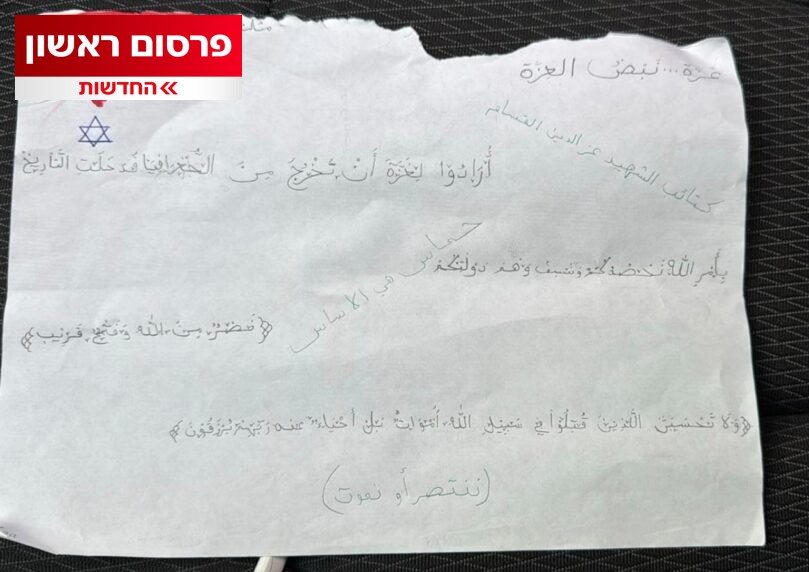 פרסום ראשון
החדשות
غزة... نبض العزة
كتائب الشهيد عز الدين القسام
أَرَادُوا لِغَزَّةَ أَنْ تَخْرُجَ مِنَ الْجُغْرَافْيَا فَدَخَلَتِ التَّارِيخَ
حماس هي الأساس
بِأَمْرِ اللهِ وَهْمَ دَوْلَتِكُمْ
﴿نَصْرٌ مِنَ اللهِ وَفَتْحٌ قَرِيبٌ﴾
﴿وَلَا تَحْسَبَنَّ الَّذِينَ قُتِلُوا فِي سَبِيلِ اللهِ أَمْوَاتًا بَلْ أَحْيَاءٌ عِنْدَ رَبِّهِمْ يُرْزَقُونَ﴾
(ننتصر أو نموت)